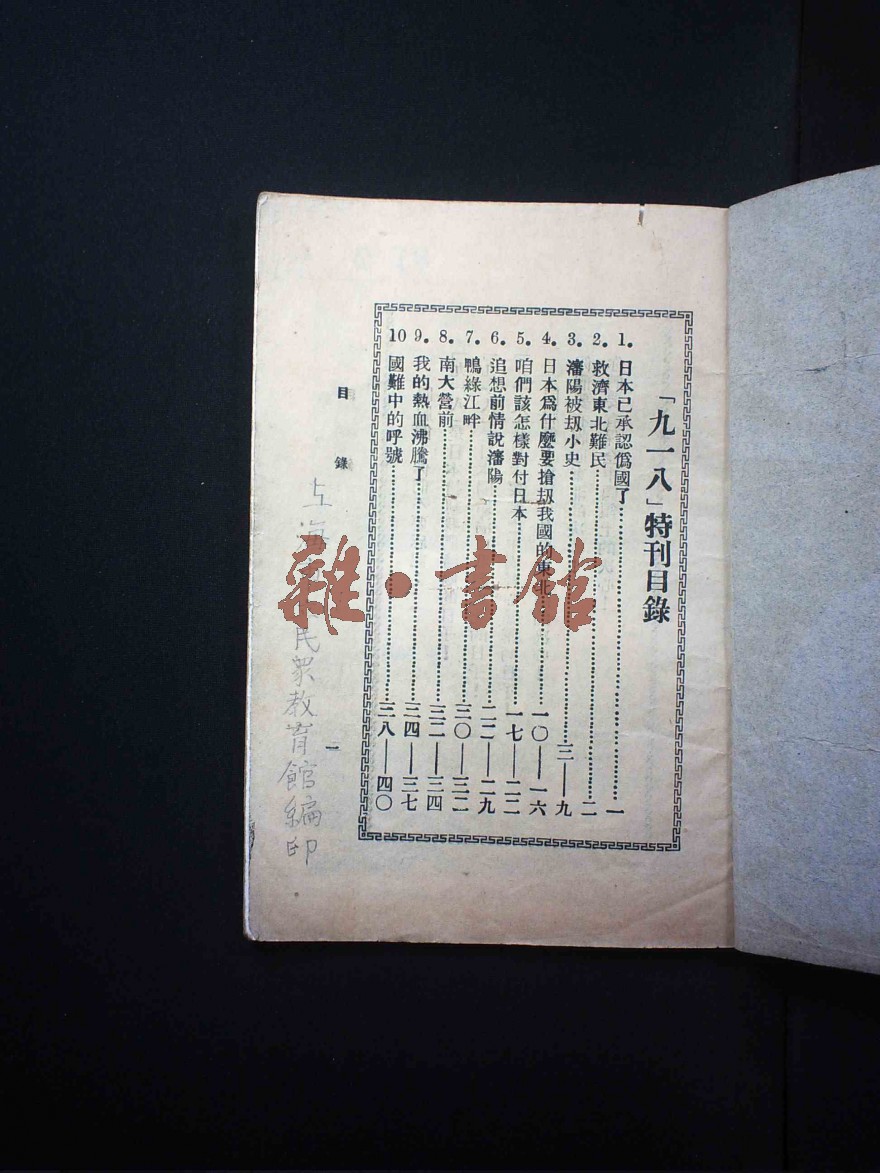 「九一八」特刊目錄
1. 日本已承認僞國了……一
2. 救濟東北難民……二
3. 瀋陽被刼小史……三——九
4. 日本爲什麼要搶刼我國的東北……一〇——一六
5. 咱們該怎樣對付日本……一七——二二
6. 追想前情說瀋陽……二二——二九
7. 鴨綠江畔……三〇——三二
8. 南大營前……三二——三四
9. 我的熱血沸騰了……三四——三七
10 國難中的呼號……三八——四〇
目錄
一
上海 民眾教育館編印
雜·書館